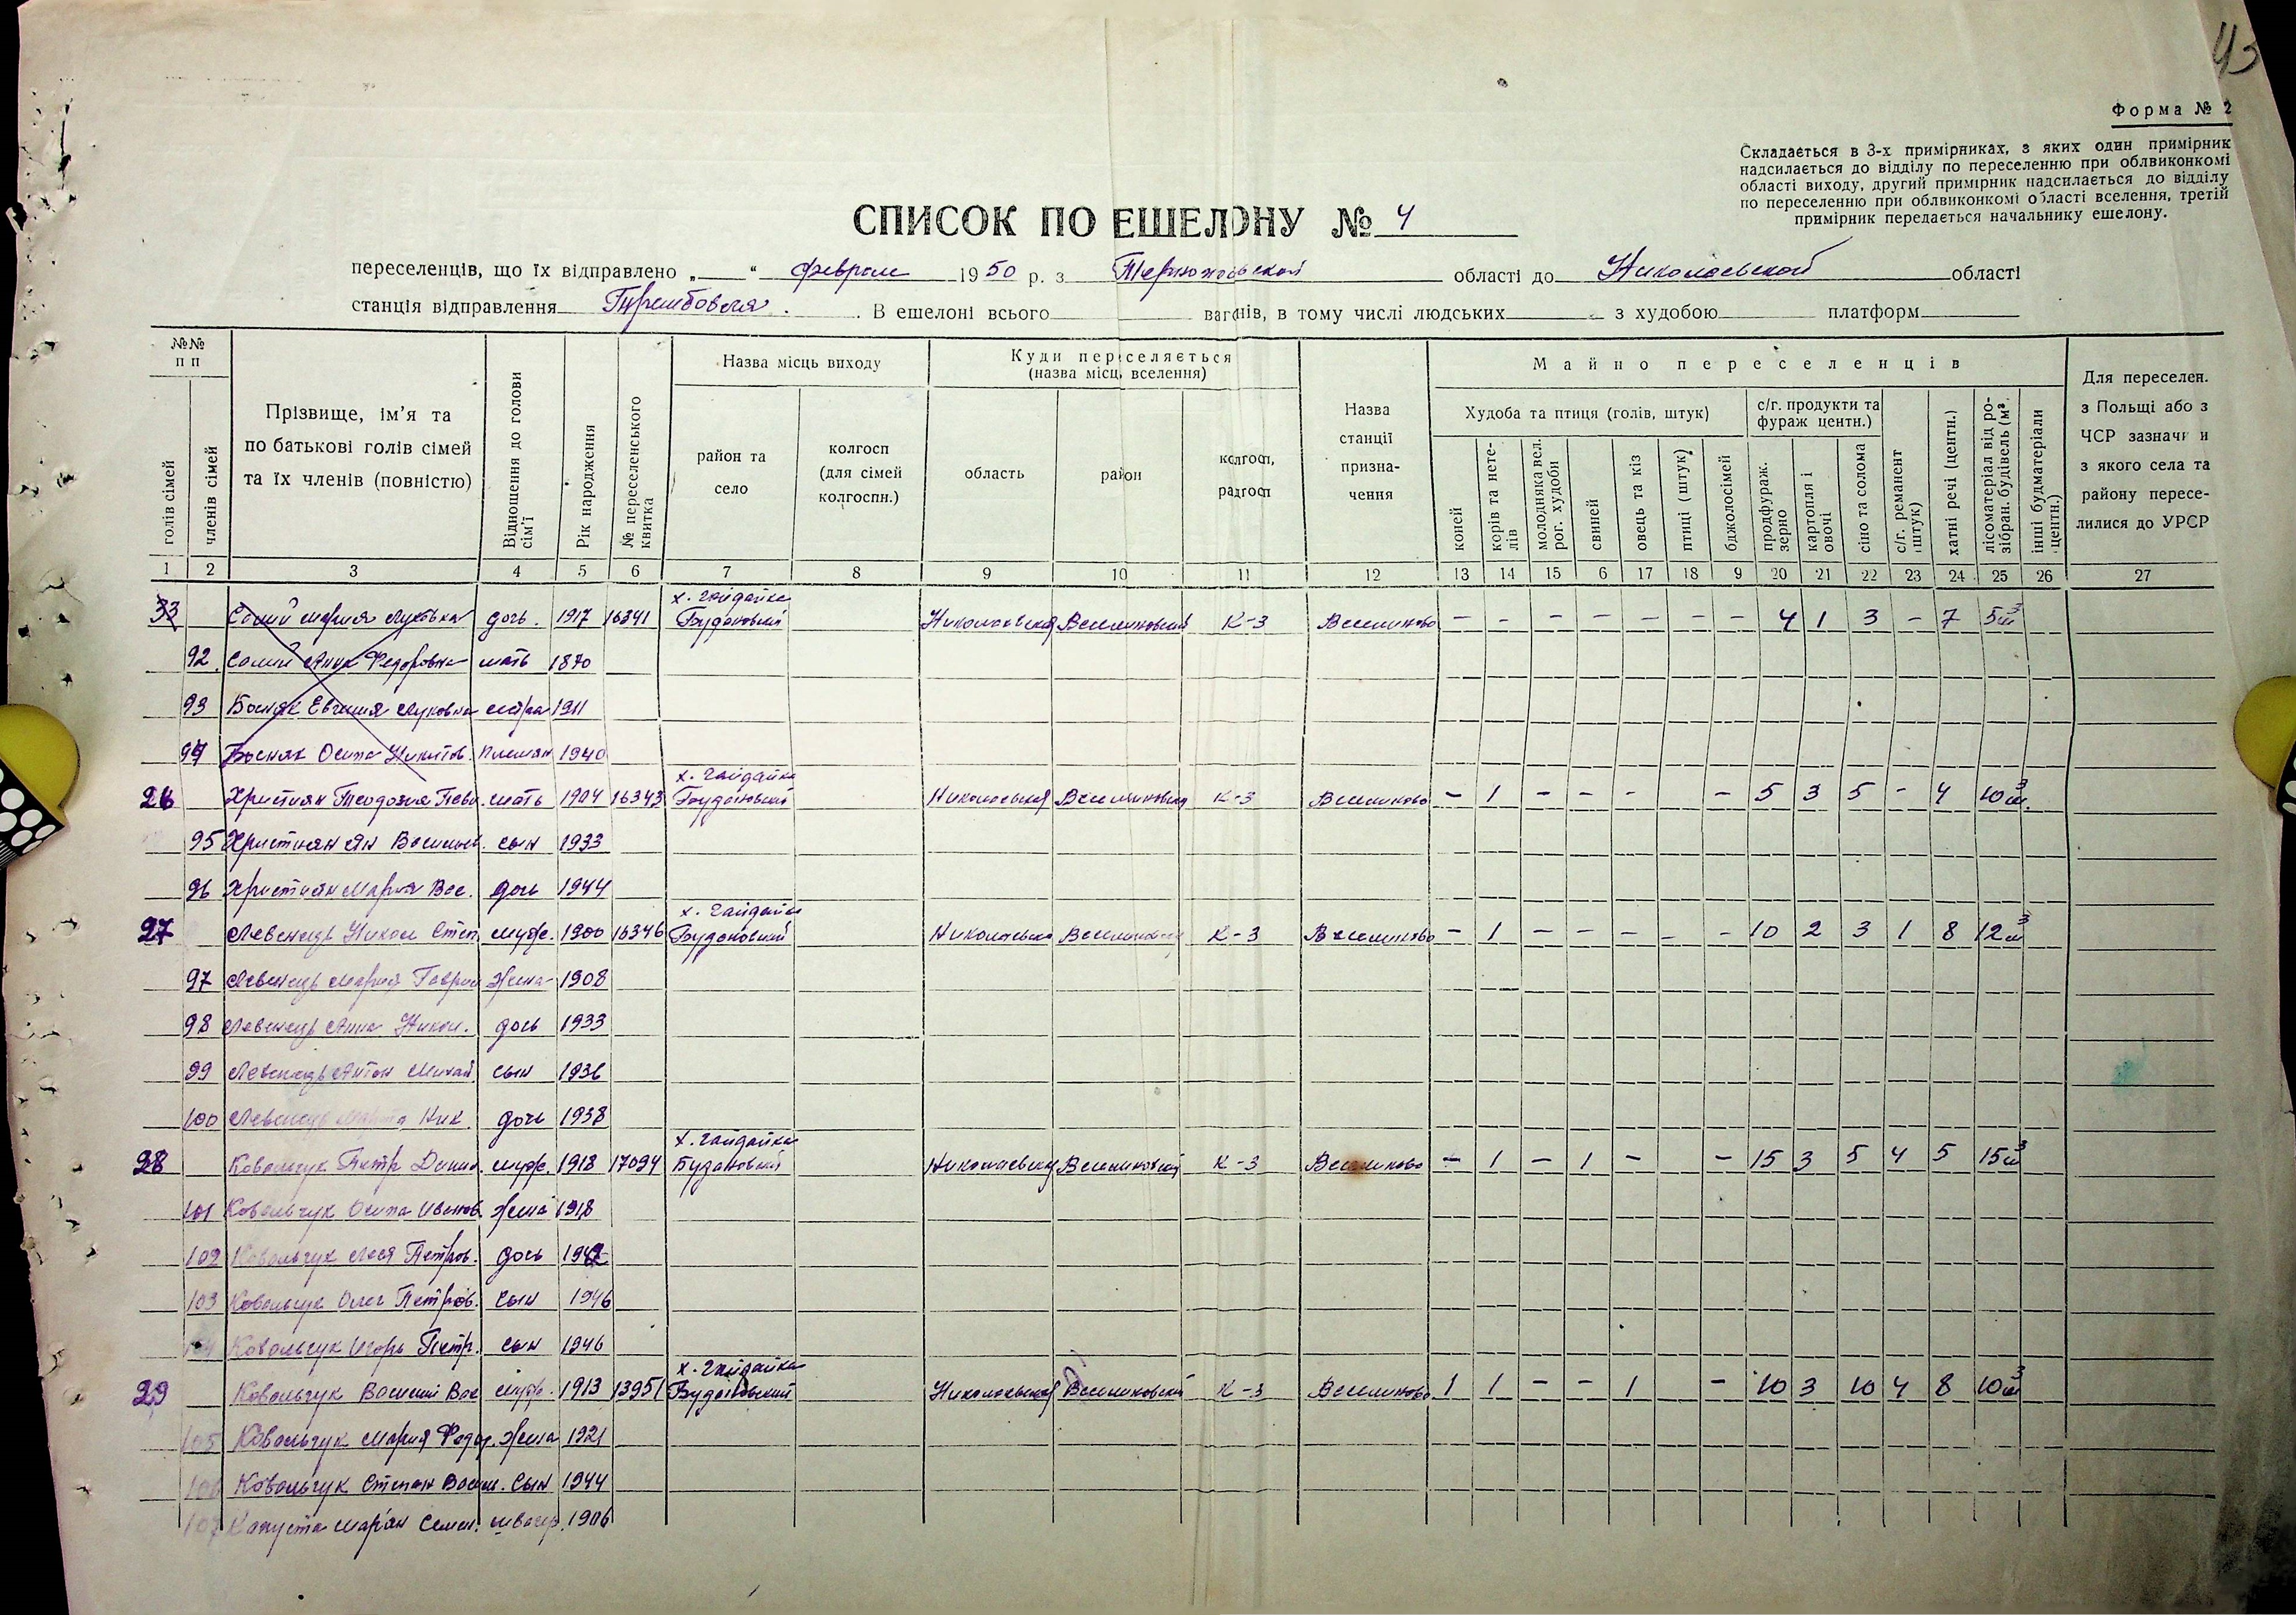 43
Форма № 2
Складається в 3-х примірниках, з яких один примірник
надсилається до відділу по переселенню при облвиконкомі
області виходу, другий примірник надсилається до відділу
по переселенню при облвиконкомі області вселення, третій
примірник передається начальнику ешелону.
СПИСОК ПО ЕШЕЛОНУ № 4
переселенців, що їх відправлено „ “ февраля 1950 р. з Тернопольской області до Николаевской області
станція відправлення Теребовля. В ешелоні всього вагонів, в тому числі людських з худобою платформ
№№ п п
голів сімей
членів сімей
Прізвище, ім'я та по батькові голів сімей та їх членів (повністю)
Відношення до голови сім'ї
Рік народження
№ переселенського квитка
Назва місць виходу
район та село
колгосп (для сімей колгоспн.)
Куди переселяється (назва місць вселення)
область
район
колгосп, радгосп
Назва станції призначення
Майно переселенців
Худоба та птиця (голів, штук)
коней
корів та нетелів
молодняка вел. рог. худоби
свиней
овець та кіз
птиці (штук)
бджолосімей
с/г. продукти та фураж центн.)
продфураж. зерно
картопля і овочі
сіно та солома
с/г. реманент (штук)
хатні речі (центн.)
лісоматеріал від розібран. будівель (м³)
інші будматеріали (центн.)
Для переселен. з Польщі або з ЧСР зазначи и з якого села та району переселилися до УРСР
1 2 3 4 5 6 7 8 9 10 11 12 13 14 15 6 17 18 9 20 21 22 23 24 25 26 27
х. Гайдайка
33 Мария дочь. 1917 16341 Будановский Николаевская Веселиновский К-3 Веселиново - - - - - - - 4 1 3 - 7 5м³
92 Анна Федоровна мать 1870
93 Босняк Евгения Луковна сестра 1911
94 Босняк Осипа Никитов. племян 1940
х. Гайдайка
26 Християн Теодозия мать 1904 16343 Будановский Николаевская Веселиновский К-3 Веселиново - 1 - - - - 5 3 5 - 4 10м³
95 Християн Ян Васильев. сын 1933
96 Християн Мария Вас. дочь 1944
х. Гайдайка
27 Левенець Никол Степ. муж. 1900 16346 Будановский Николаевская Веселиновский К-3 Веселиново - 1 - - - - - 10 2 3 1 8 12м³
97 Левенець Мария Гаврил жена 1908
98 Левенець Анна Никол. дочь 1933
99 Левенець Антон Михай. сын 1936
100 Левенець Ник. дочь 1938
х. Гайдайка
28 Ковальчук Петр Данил. муж. 1918 17094 Будановский Николаевская Веселиновский К-3 Веселиново - 1 - 1 - - 15 3 5 4 5 15м³
101 Ковальчук Осипа Иванов. жена 1918
102 Ковальчук Леся Петров. дочь 1942
103 Ковальчук Олег Петров. сын 1946
104 Ковальчук Игорь Петр. сын 1946
х. Гайдайка
29 Ковальчук Василий Вас муж. 1913 13951 Будановский Николаевская Веселиновский К-3 Веселиново 1 1 - - 1 - 10 3 10 4 8 10м³
105 Ковальчук Мария Федор. жена 1921
106 Ковальчук Степан Васил. сын 1944
107 Капуста Мар'ян Семен. швагр. 1906